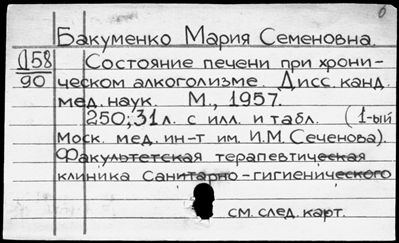 б
Бакуменко Мария Семеновна.
Д58 Состояние печени при хрони-
90 ческом алкоголизме. Дисс. канд.
мед. наук. М., 1957.
250; 31 л. с илл. и табл. (1-ый
Моск. мед. ин-т им. И.М. Сеченова).
Факультетская терапевтическая
клиника Санитарно-гигиенического
см. след. карт.